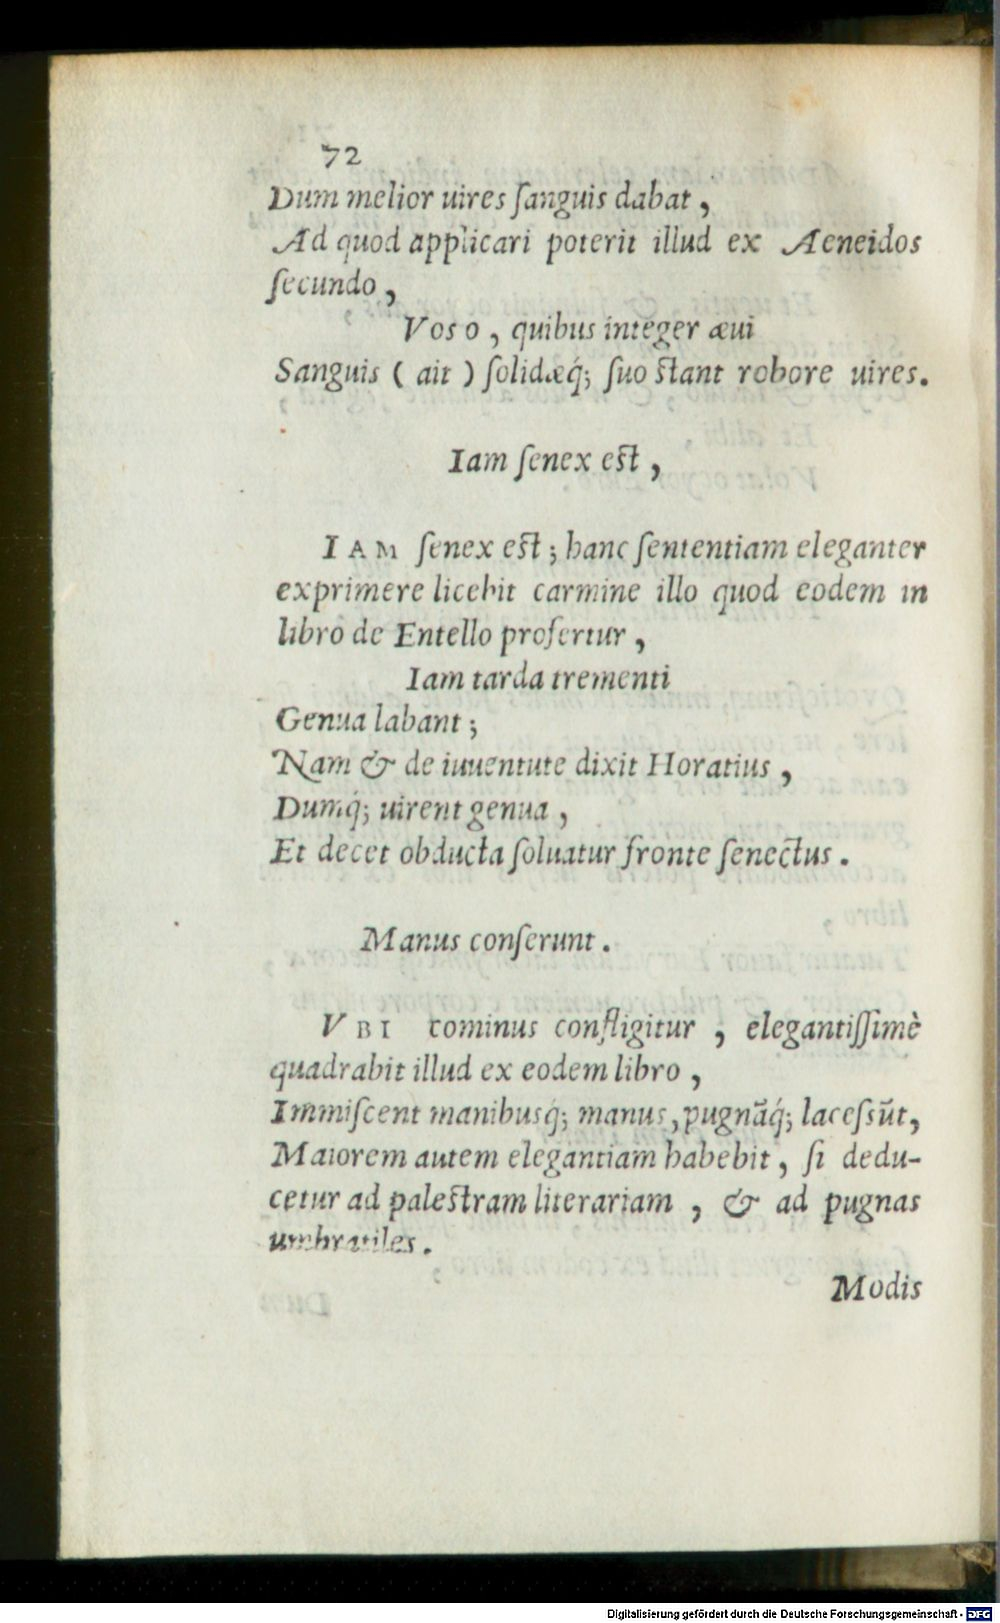 72
Dum melior uires ſanguis dabat ,
Ad quod applicari poterit illud ex Aeneidos
ſecundo ,
Vos o , quibus integer æui
Sanguis ( ait ) ſolidæq́; ſuo ſtant robore uires.
Iam ſenex eſt ,
IAM ſenex eſt ; hanc ſententiam eleganter
exprimere licebit carmine illo quod eodem in
libro de Entello profertur ,
Iam tarda trementi
Genua labant ;
Nam & de iuuentute dixit Horatius ,
Dumq́; uirent genua ,
Et decet obducta ſoluatur fronte ſenectus .
Manus conſerunt .
VBI cominus confligitur , elegantiſſimè
quadrabit illud ex eodem libro ,
Immiſcent manibusq́; manus, pugnãq́; laceſsũt,
Maiorem autem elegantiam habebit , ſi dedu-
cetur ad paleſtram literariam , & ad pugnas
umbratiles .
Modis
Digitalisierung gefördert durch die Deutsche Forschungsgemeinschaft - DFG